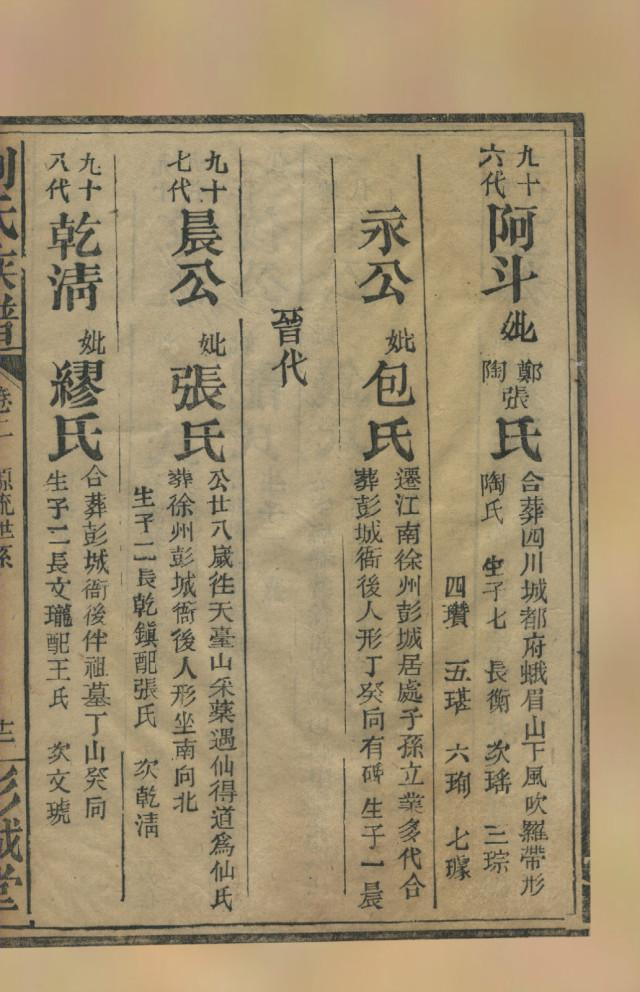 九十六代 阿斗 妣 鄭張陶氏 合葬四川城都府蛾眉山下風吹羅帶形
陶氏 生子七 長衡 次瑤 三琮
四瓚 五堪 六珣 七璩
永公 妣包氏 遷江南徐州彭城居處子孫立業多代合
葬彭城衙後人形丁癸向有碑 生子一晨
晉代
九十七代 晨公 妣張氏 公廿八嵗徃天臺山采藥遇仙得道爲仙氏
葬徐州彭城衙後人形坐南向北
生子二 長乾鎮配張氏 次乾清
九十八代 乾清 妣繆氏 合葬彭城衙後伴祖墓丁山癸向
生子二 長文瓏配王氏 次文琥
劉氏族譜 卷二 源流世系 彭城堂